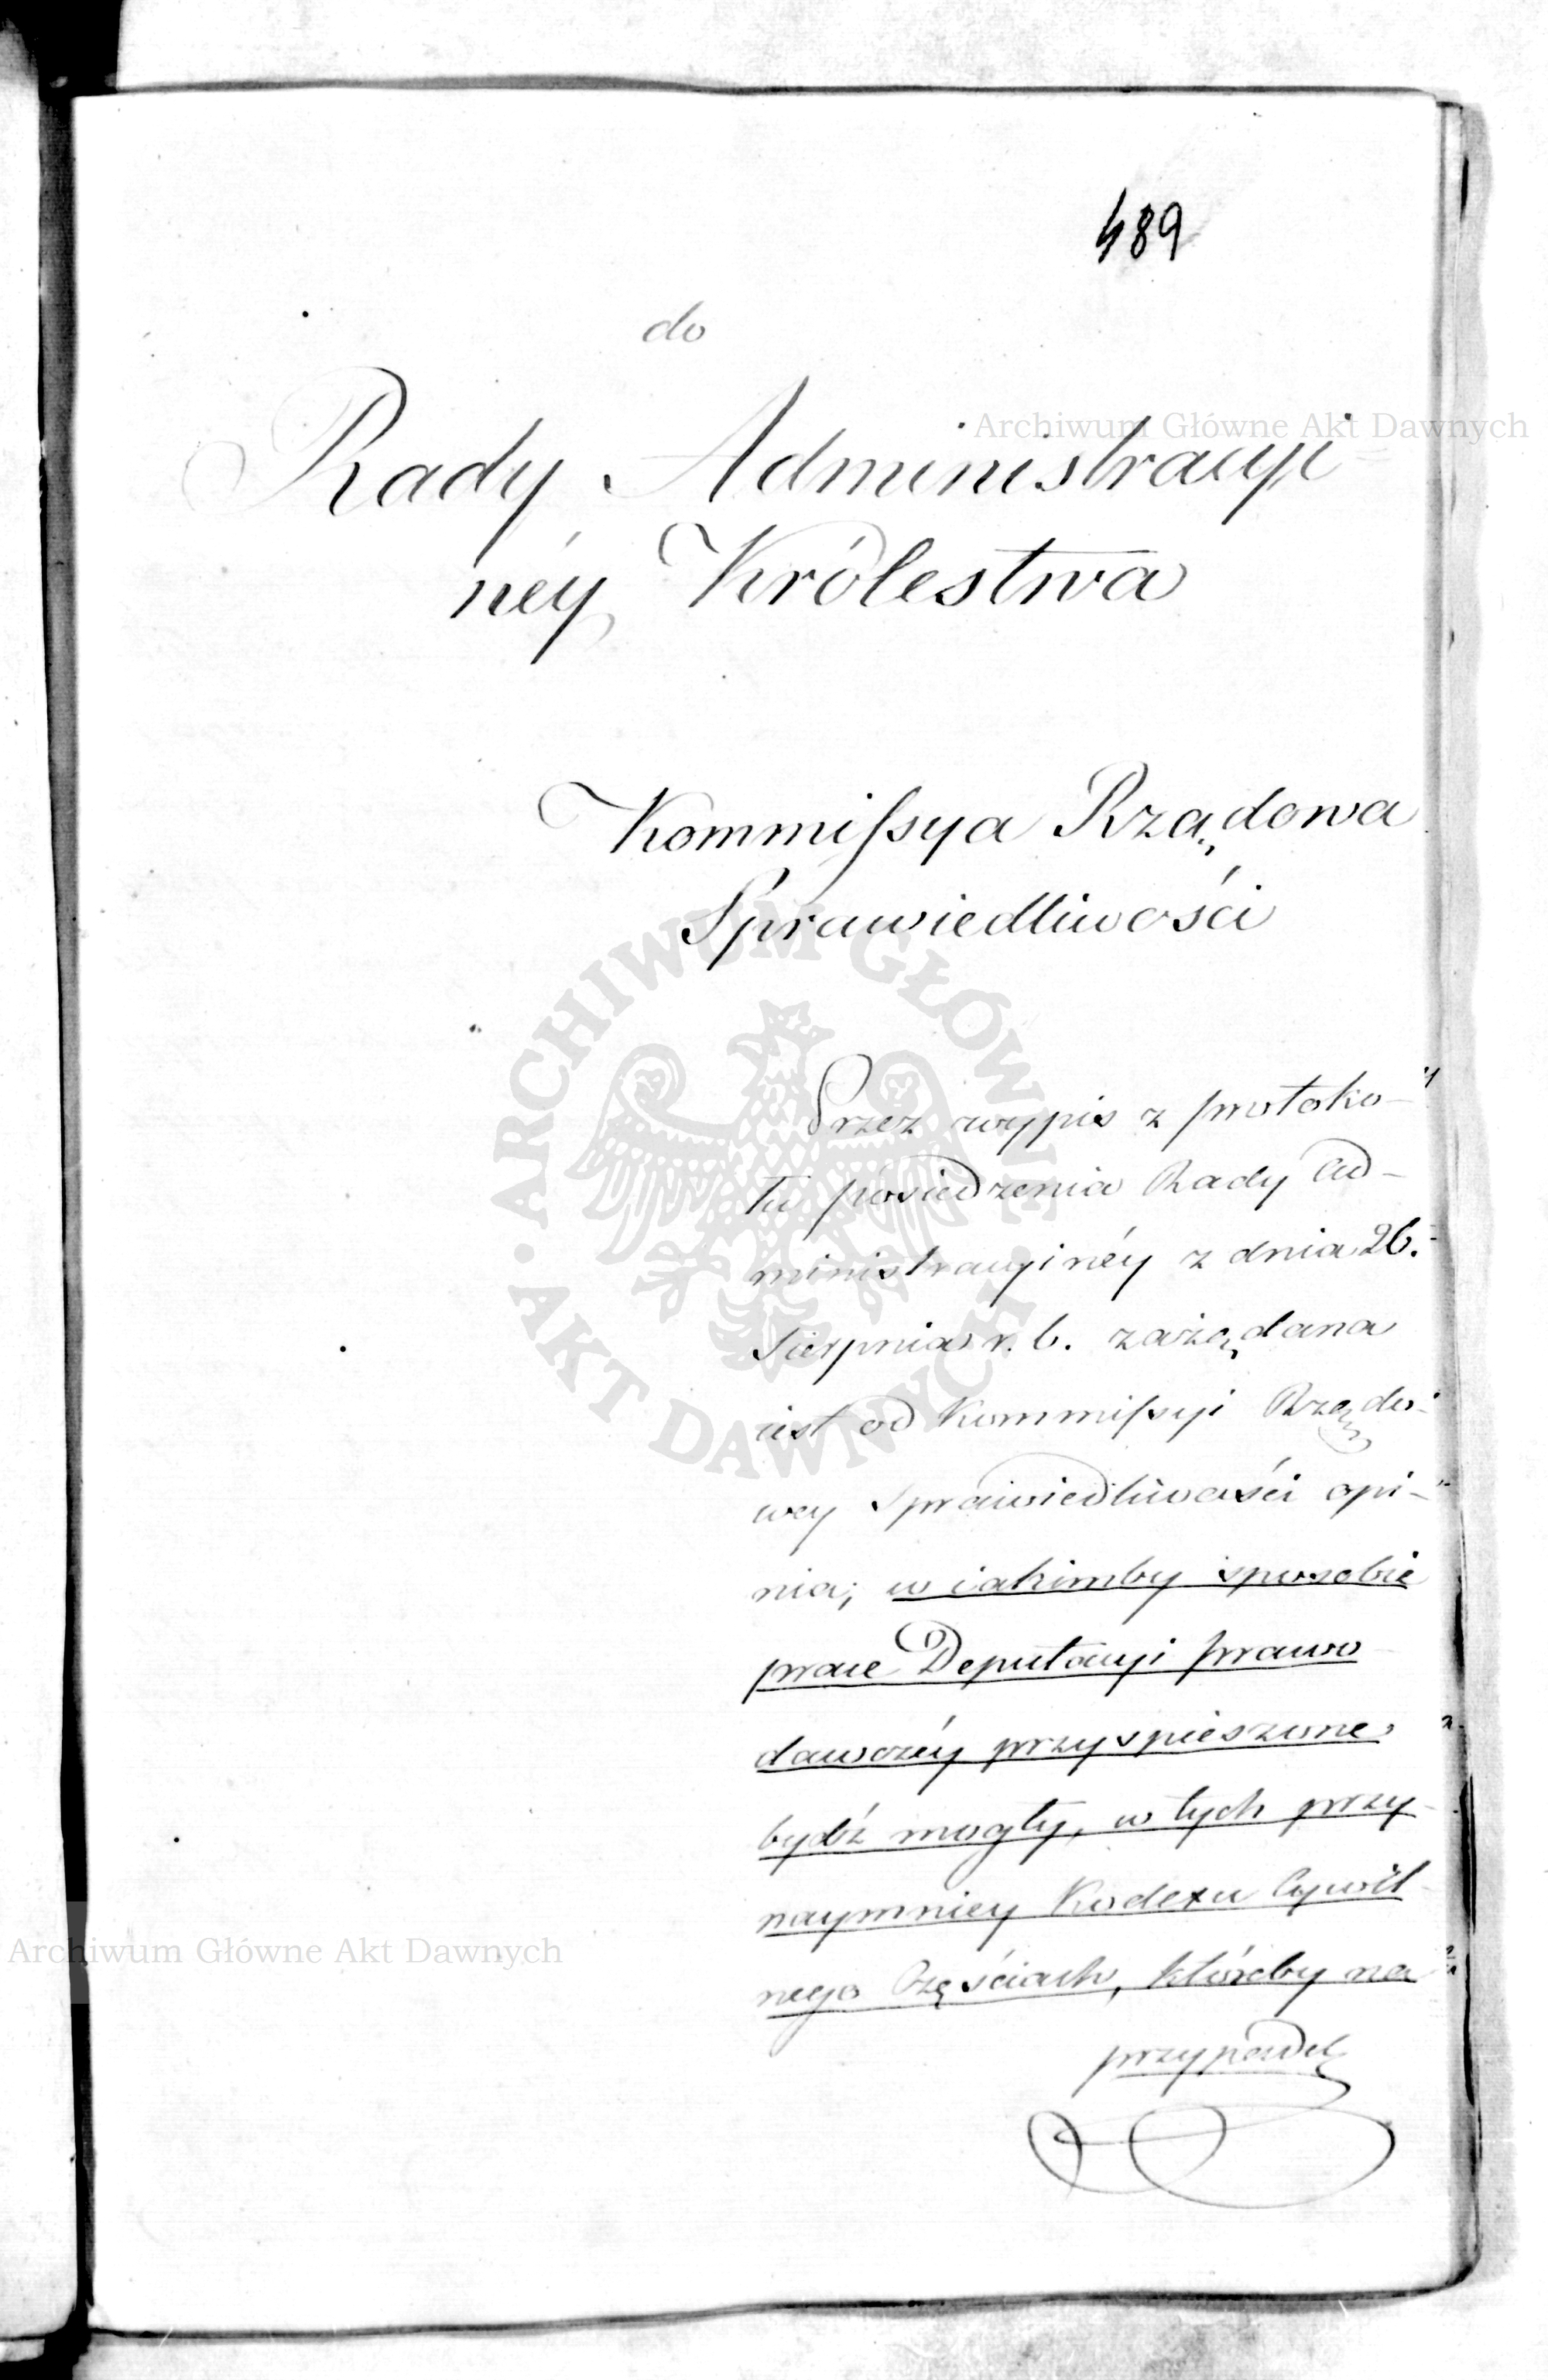 489
do
Rady Administracyi
néy Królestwa
Kommissya Rządowa
Sprawiedliwości
Przez wypis z protoko-
łu posiedzenia Rady Ad-
ministracyinéy z dnia 26.
Sierpnia r. b. zażądana
iest od Kommissyi Rządo-
wey Sprawiedliwości opi-
nia; w iakimby sposobie
prace Deputacyi prawo
dawczéy przyspieszone
bydź mogły, w tych przy-
naymniey Kodexu Cywil
nego Częściach, któreby na
Archiwum Główne Akt Dawnych
ARCHIWUM GŁÓWNE AKT DAWNYCH
Archiwum Główne Akt Dawnych